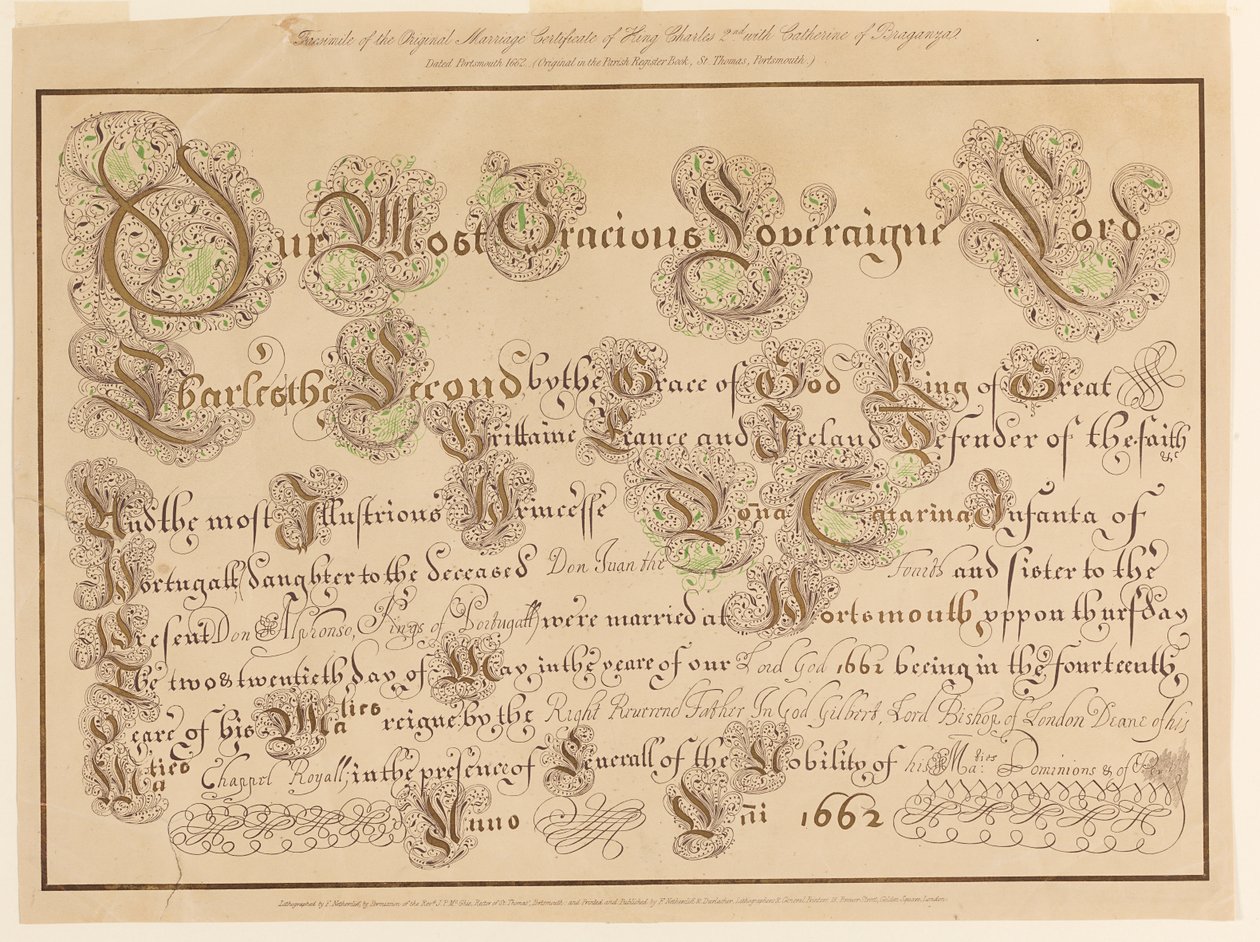 Facsimile of the Original Marriage Certificate of King Charles 2nd with Catherine of Braganza.
Dated Portsmouth 1662. (Original in the Parish Register Book, St. Thomas, Portsmouth.)
Our Most Gracious Soveraigne Lord
Charles the Second by the Grace of God King of Great
Brittaine France and Ireland Defender of the faith &c
And the most Illustrious Princesse Dona Catarina Infanta of
Portugall, daughter to the deceased Don Juan the Fourth and sister to the
Present Don Alphonso, Kings of Portugall, were married at Portsmouth, vppon thursday
The two & twentieth day of May, in the yeare of our Lord God 1662 beeing in the fourteenth
Yeare of his Maties reigne, by the Right Reverend Father In God Gilbert, Lord Bishop of London Deane of his
Maties Chappel Royall; in the presence of Severall of the Nobility of his Maties Dominions & of
Anno Dñi 1662
Lithographed by F. Netherclift, by Permission of the Revd. J. P. McGhie, Rector of St. Thomas', Portsmouth: and Printed and Published by F. Netherclift & Durlacher, Lithographers & General Printers 18 Brewer Street, Golden Square, London.